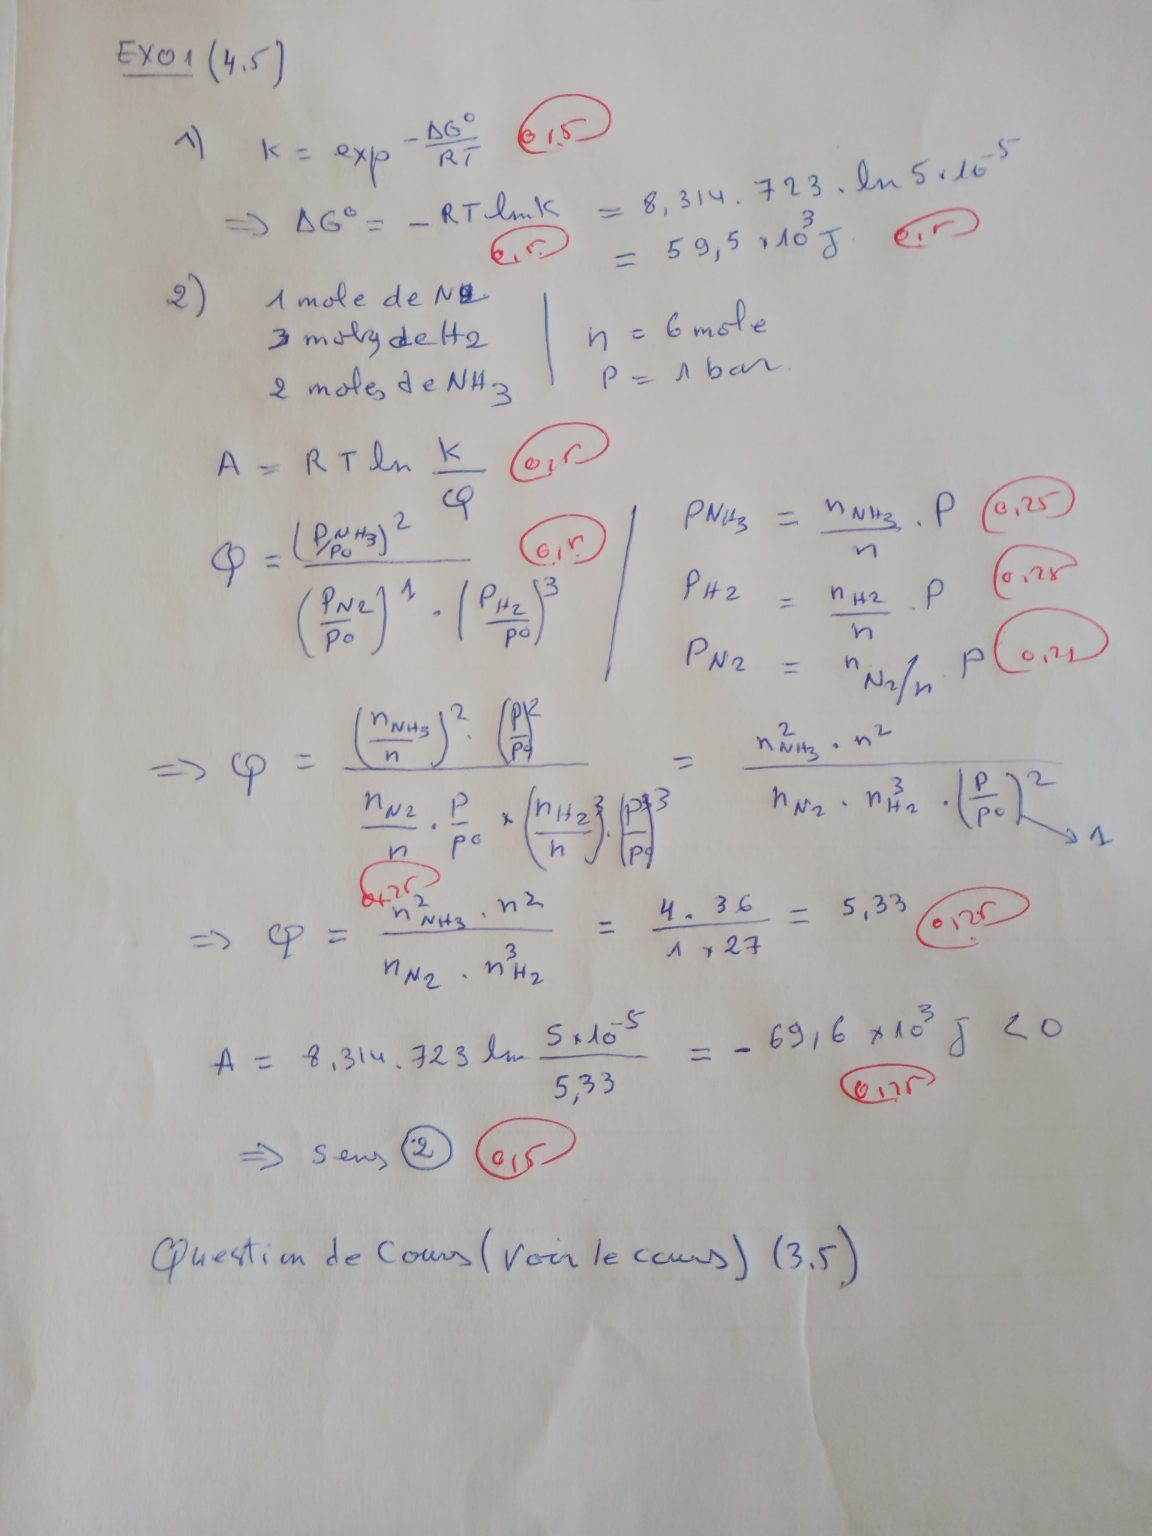 EXO1 (4.5)
1) K = exp -ΔG°/RT 0,5
=> ΔG° = - RT ln K = 8,314 . 723 . ln 5 . 10^-5
0,5 = 59,5 x 10^3 J 0,5
2) 1 mole de N2
3 moles de H2 | n = 6 mole
2 moles de NH3 | P = 1 bar
A = RT ln K/φ 0,5
φ = (PNH3/P0)^2 / (PN2/P0)^1 . (PH2/P0)^3 0,5
PNH3 = nNH3/n . P 0,25
PH2 = nH2/n . P 0,25
PN2 = nN2/n . P 0,25
=> φ = (nNH3/n)^2 . (P/P0)^2 / nN2/n . P/P0 x (nH2/n)^3 . (P/P0)^3 = n^2NH3 . n^2 / nN2 . n^3H2 . (P/P0)^2 → 1
0,25
=> φ = n^2NH3 . n^2 / nN2 . n^3H2 = 4 . 36 / 1 x 27 = 5,33 0,25
A = 8,314 . 723 ln 5 x 10^-5 / 5,33 = - 69,6 x 10^3 J < 0
=> sens 2 0,5
Question de Cours (Voir le cours) (3.5)